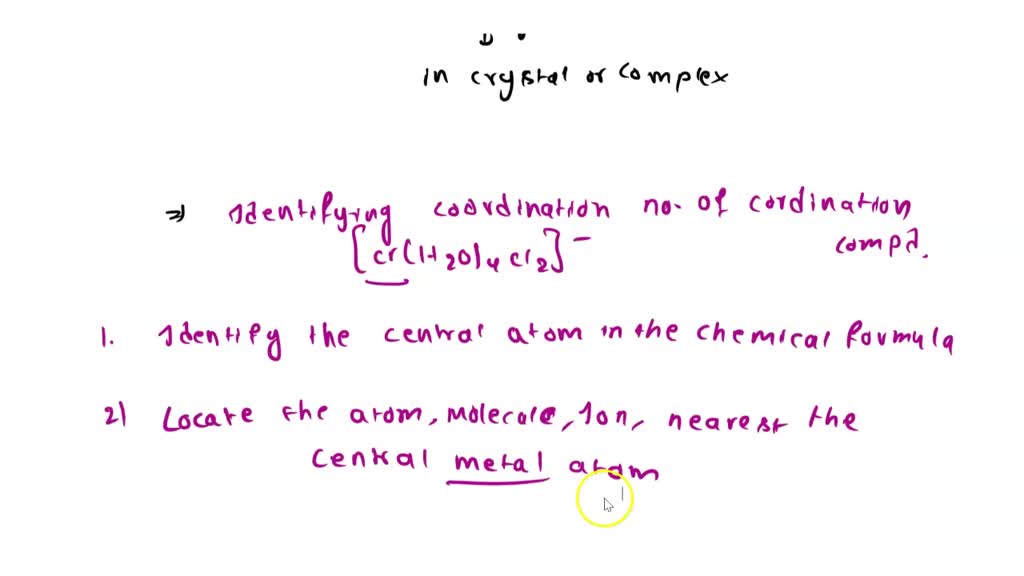 in crystal or complex
⇒ Identifying coordination no. of cordination
[Cr(H2O)4Cl2]⁻ compd.
1. Identify the central atom in the chemical formula
2) Locate the atom, molecule, Ion, nearest the
central metal atom